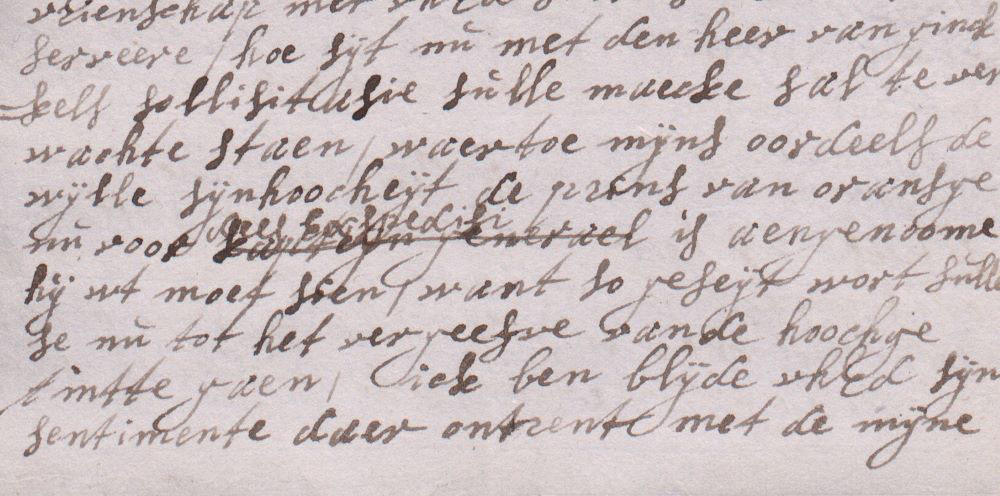 vrienschap met uhEd
serveere / hoe sijt nu met den heer van ginck
=kels sollisitasie sulle maecke sal te ver
wachte staen / waertoe mijns oordeels de
wijlle sijnhoocheijt de prins van oransge
nu voor kapiteijn generael is aengenoome
hij wt moet sien / want so geseijt wort sulle
se nu tot het vergeefve vande hoochge
timtte gaen / ick ben blijde uhEd sijn
sentimente daer ontrent met de mijne